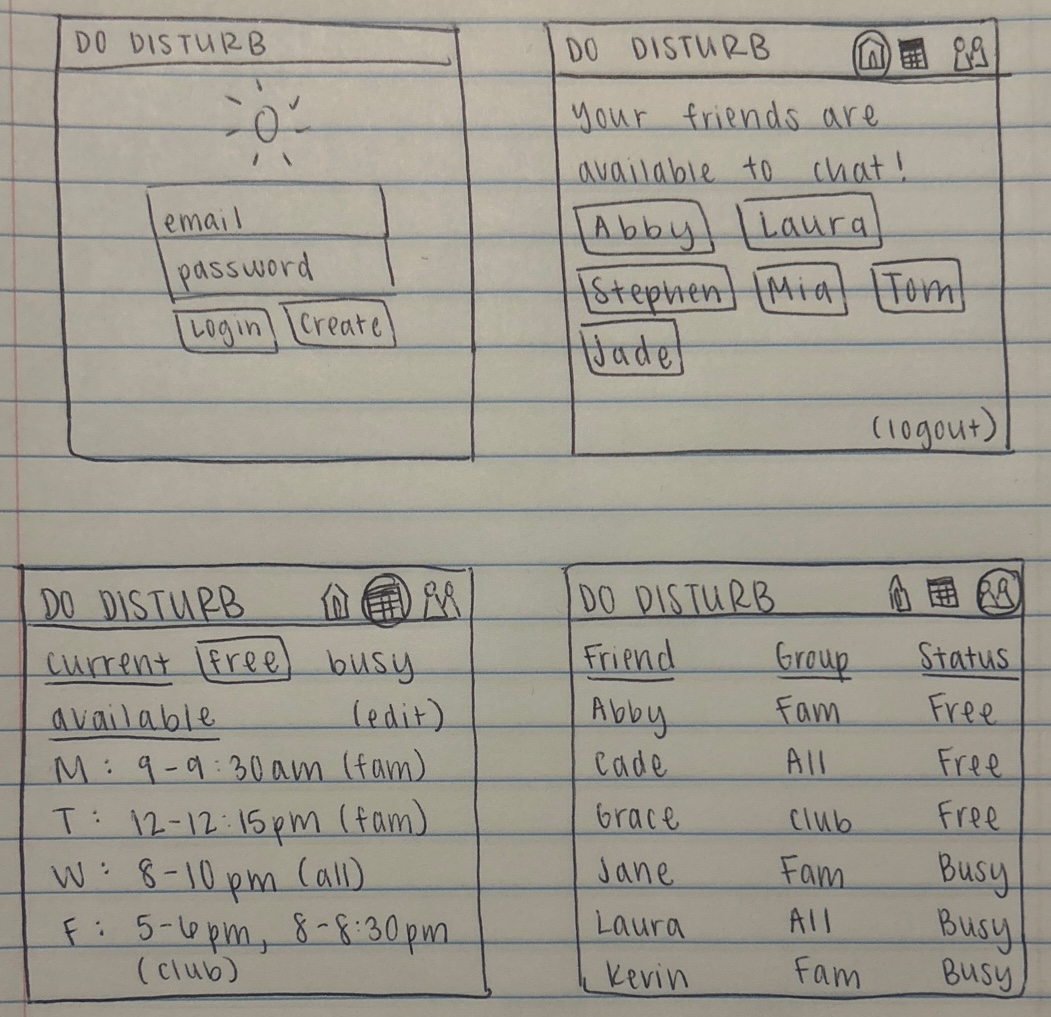 DO DISTURB
email
password
Login Create
DO DISTURB
Your friends are
available to chat!
Abby Laura
Stephen Mia Tom
Jade
(logout)
DO DISTURB
current free busy
available (edit)
M: 9-9:30am (fam)
T: 12-12:15pm (fam)
W: 8-10pm (all)
F: 5-6pm, 8-8:30pm
(club)
DO DISTURB
Friend Group Status
Abby Fam Free
Cade All Free
Grace Club Free
Jane Fam Busy
Laura All Busy
Kevin Fam Busy